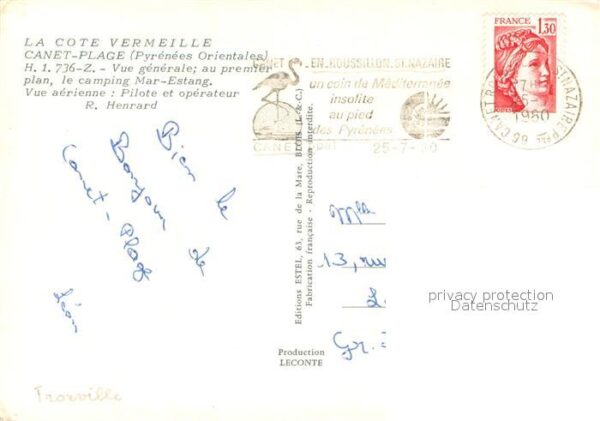 LA COTE VERMEILLE
CANET-PLAGE (Pyrénées Orientales)
H. 1. 736-Z. - Vue générale; au premier
plan, le camping Mar-Estang.
Vue aérienne : Pilote et opérateur
R. Henrard
EN ROUSSILLON ST. NAZAIRE
un coin de Méditerranée
insolite
au pied
des Pyrénées
CANET
25-7-80
FRANCE
1,30
POSTES
ST NAZAIRE
1980
66 CANET
Bien le
Bonjour de
Canet-Plage
Léon
Editions ESTEL, 63, rue de la Mare, BLOIS (L.-&-C.)
Fabrication française - Reproduction interdite.
Mlle
13, rue
Production
LECONTE
privacy protection
Datenschutz
Trorville